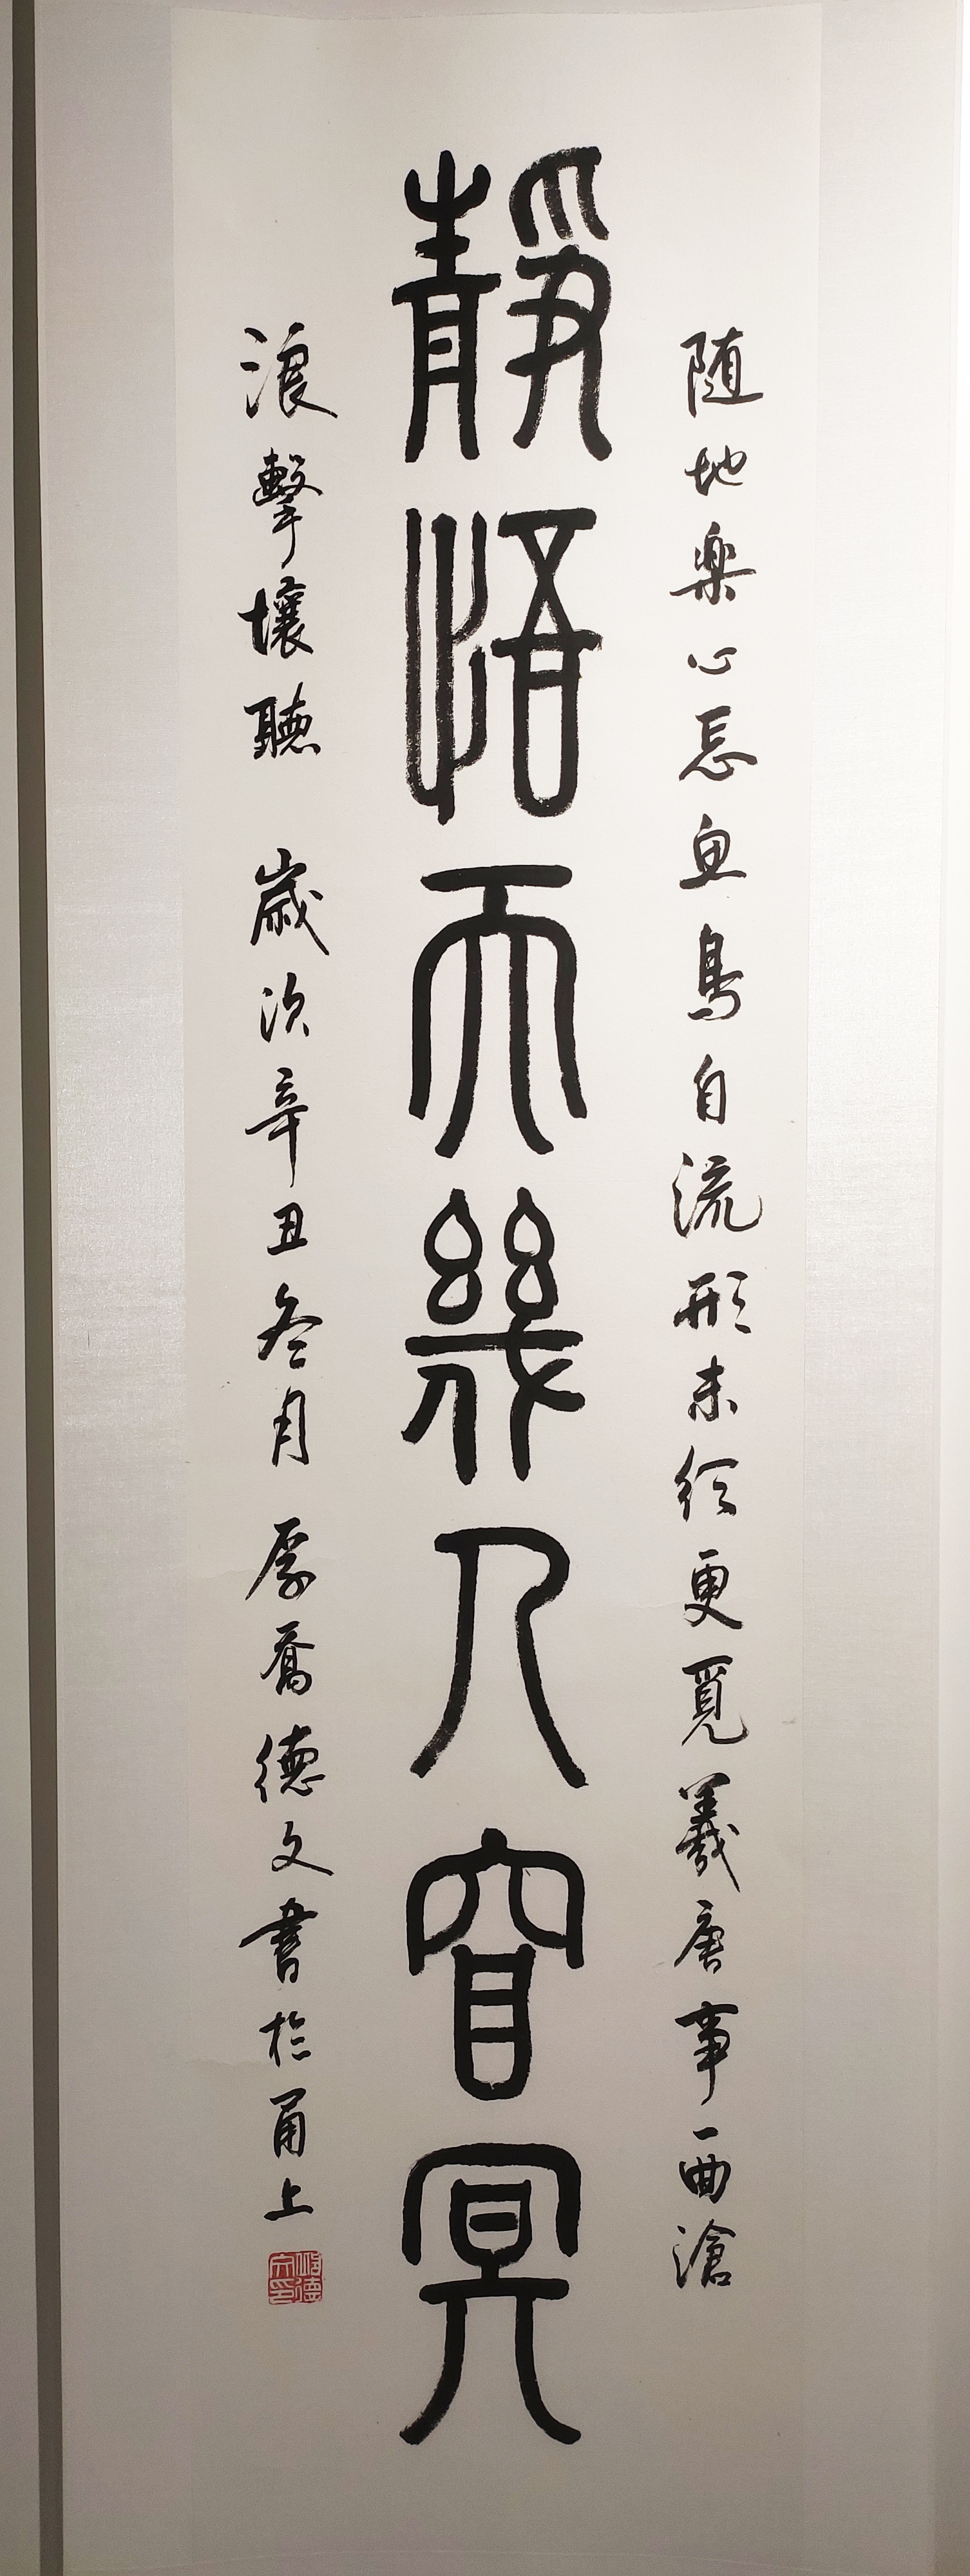 靜悟天幾入窅冥
随地楽心忘魚鳥自流形未须更覓羲唐事一曲滄
浪擊壤聽 歲次辛丑冬月 德文書於甬上